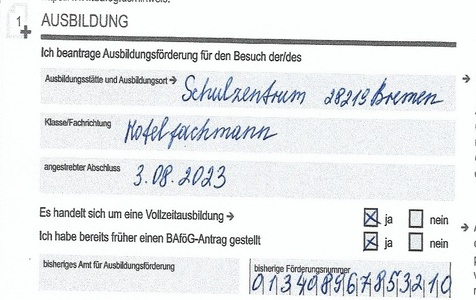 1 AUSBILDUNG
Ich beantrage Ausbildungsförderung für den Besuch der/des
Ausbildungsstätte und Ausbildungsort → Schulzentrum 28219 Bremen
Klasse/Fachrichtung Hotelfachmann
angestrebter Abschluss 3.08.2023
Es handelt sich um eine Vollzeitausbildung → ☒ ja ☐ nein
Ich habe bereits früher einen BAföG-Antrag gestellt ☒ ja ☐ nein
bisheriges Amt für Ausbildungsförderung bisherige Förderungsnummer